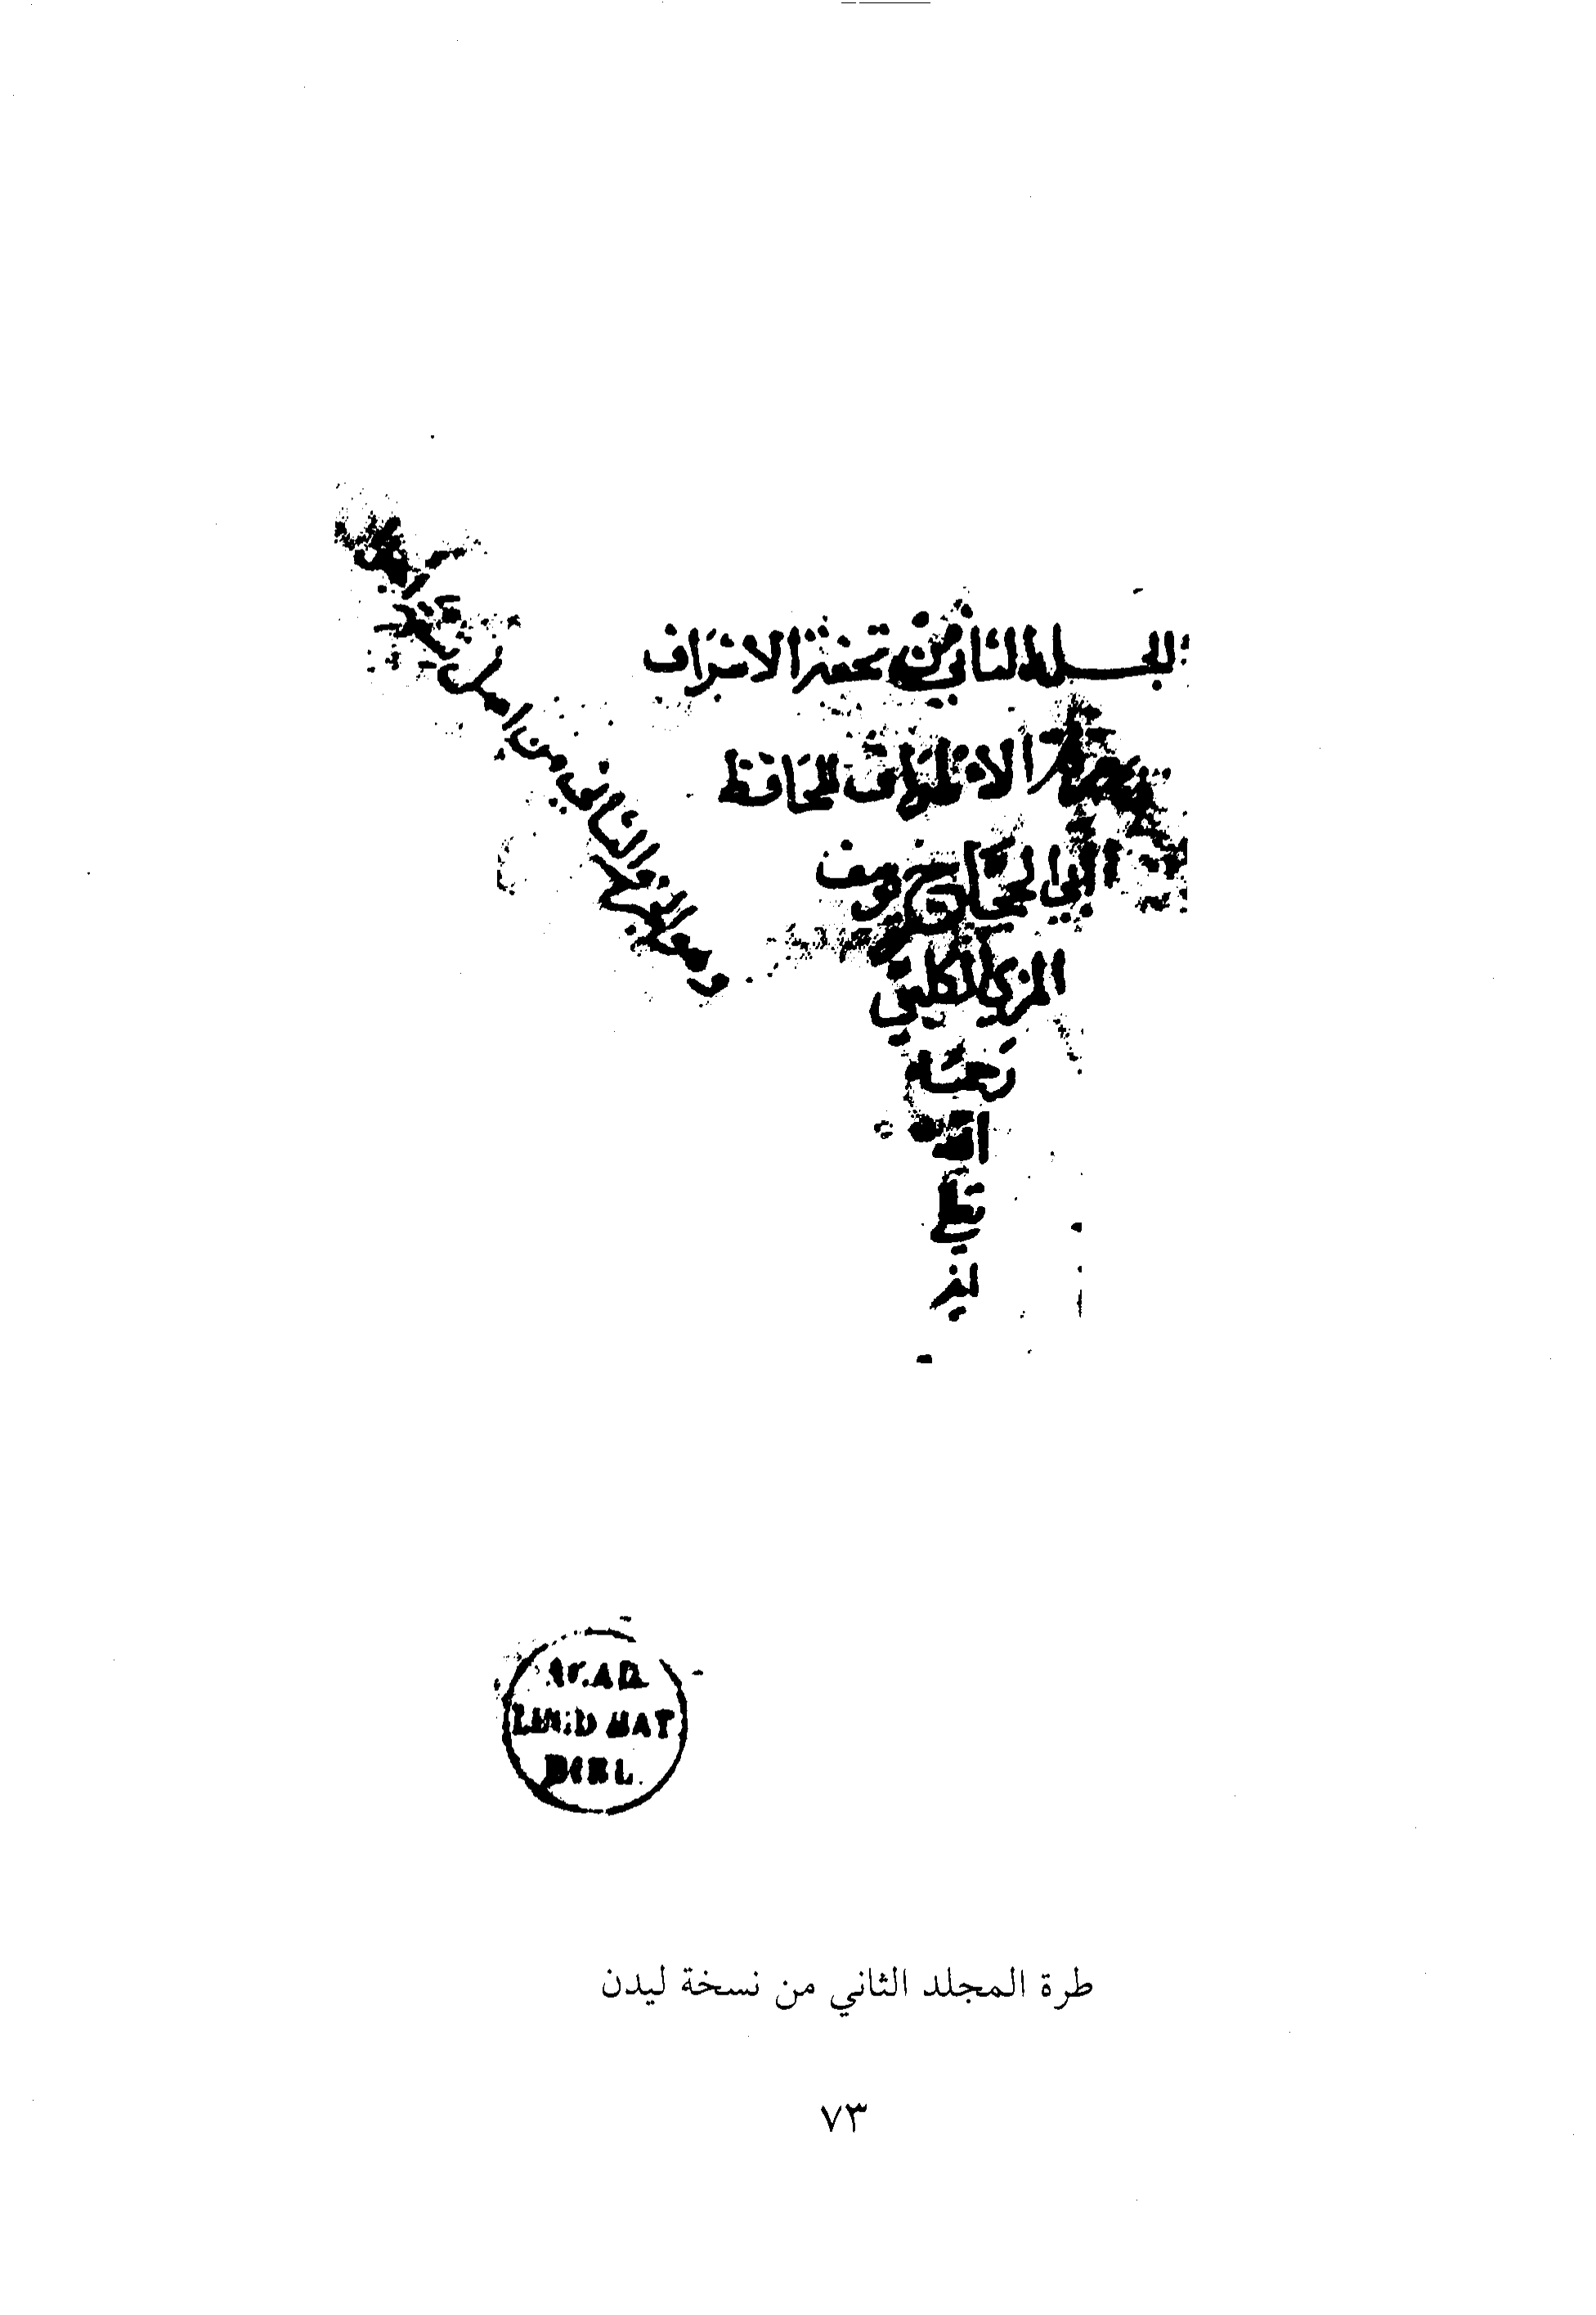 المجلد الثاني من تحفة الاشراف
الاطراف للحافظ
ابي الحجاج يوسف
المزي الكلبي
رحمه
الله
تعلى
الثاني من
ACAD
LUGD BAT
BIBL.
طرة المجلد الثاني من نسخة ليدن
٧٣